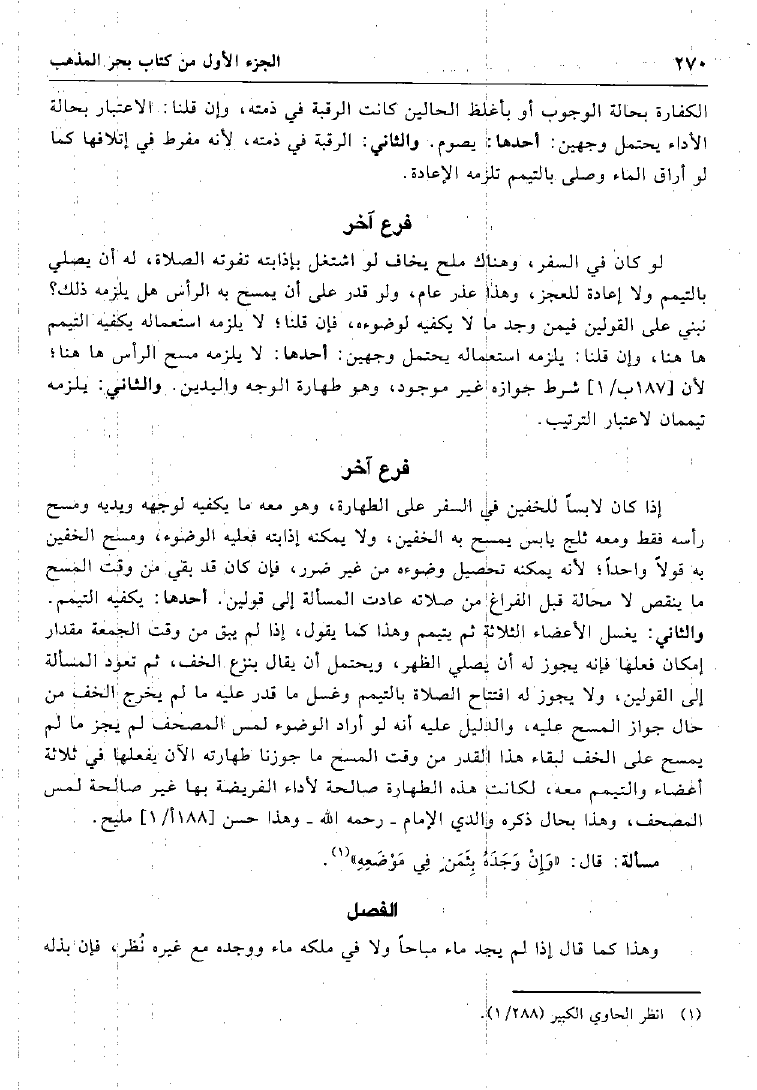 ٢٧٠
الجزء الأول من كتاب بحر المذهب
الكفارة بحالة الوجوب أو بأغلظ الحالين كانت الرقبة في ذمته، وإن قلنا: الاعتبار بحالة
الأداء يحتمل وجهين: أحدها: يصوم. والثاني: الرقبة في ذمته، لأنه مفرط في إتلافها كما
لو أراق الماء وصلى بالتيمم تلزمه الإعادة.
فرع آخر
لو كان في السفر، وهناك ملح يخاف لو اشتغل بإذابته تفوته الصلاة، له أن يصلي
بالتيمم ولا إعادة للعجز، وهذا عذر عام، ولو قدر على أن يمسح به الرأس هل يلزمه ذلك؟
نبني على القولين فيمن وجد ما لا يكفيه لوضوءه، فإن قلنا؛ لا يلزمه استعماله يكفيه التيمم
ها هنا، وإن قلنا: يلزمه استعماله يحتمل وجهين: أحدها: لا يلزمه مسح الرأس ها هنا؛
لأن [١٨٧ب/١] شرط جوازه غير موجود، وهو طهارة الوجه واليدين. والثاني: يلزمه
تيممان لاعتبار الترتيب.
فرع آخر
إذا كان لابساً للخفين في السفر على الطهارة، وهو معه ما يكفيه لوجهه ويديه ومسح
رأسه فقط ومعه ثلج يابس يمسح به الخفين، ولا يمكنه إذابته فعليه الوضوء، ومسح الخفين
به قولاً واحداً؛ لأنه يمكنه تحصيل وضوءه من غير ضرر، فإن كان قد بقي من وقت المسح
ما ينقص لا محالة قبل الفراغ من صلاته عادت المسألة إلى قولين. أحدها: يكفيه التيمم.
والثاني: يغسل الأعضاء الثلاثة ثم يتيمم وهذا كما يقول، إذا لم يبق من وقت الجمعة مقدار
إمكان فعلها فإنه يجوز له أن يصلي الظهر، ويحتمل أن يقال ينزع الخف، ثم تعود المسألة
إلى القولين، ولا يجوز له افتتاح الصلاة بالتيمم وغسل ما قدر عليه ما لم يخرج الخف من
حال جواز المسح عليه، والدليل عليه أنه لو أراد الوضوء لمس المصحف لم يجز ما لم
يمسح على الخف لبقاء هذا القدر من وقت المسح ما جوزنا طهارته الآن يفعلها في ثلاثة
أعضاء والتيمم معه، لكانت هذه الطهارة صالحة لأداء الفريضة بها غير صالحة لمس
المصحف، وهذا بحال ذكره والدي الإمام ـ رحمه الله ـ وهذا حسن [١٨٨أ/١] مليح.
مسألة: قال: «وَإِنْ وَجَدَهُ بِثَمَنٍ فِي مَوْضَعِهِ»(١).
الفصل
وهذا كما قال إذا لم يجد ماء مباحاً ولا في ملكه ماء ووجده مع غيره نُظر، فإن بذله
(١) انظر الحاوي الكبير (٢٨٨/١).